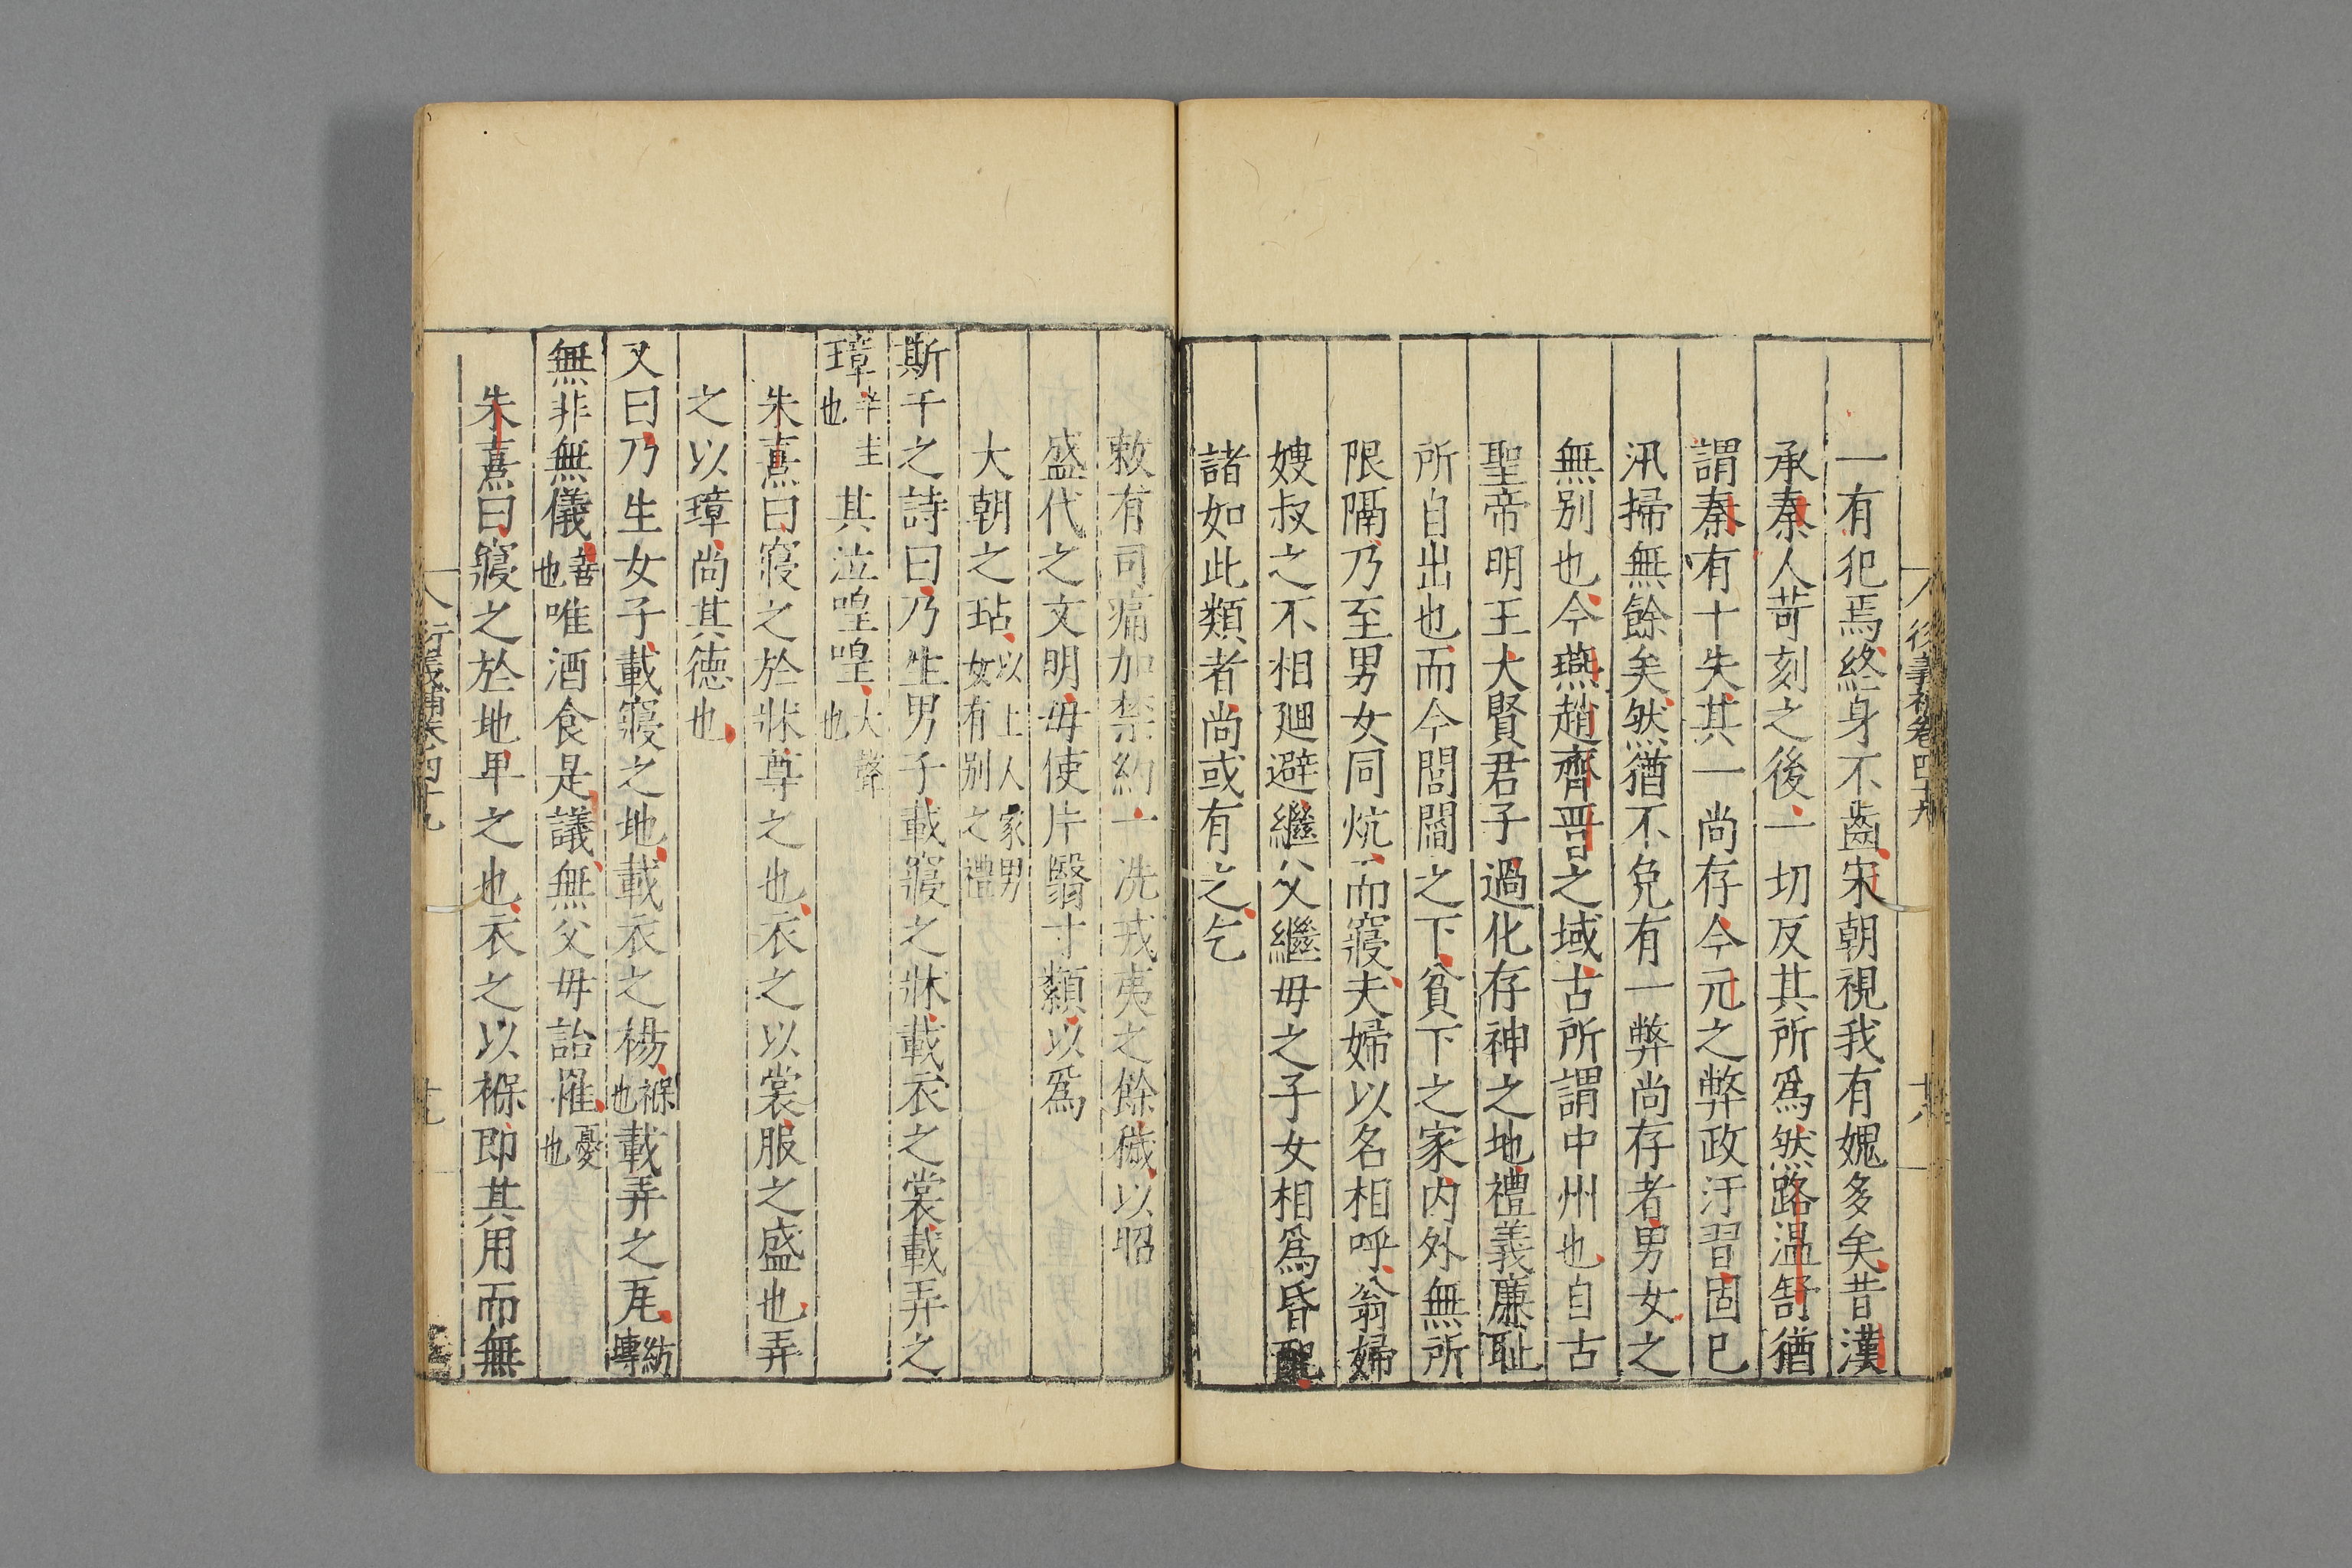 一有犯焉終身不齒宋朝視我有媿多矣昔漢
承秦人苛刻之後一切反其所為然路温舒猶
謂秦有十失其一尚存今元之弊政汙習固已
汛掃無餘矣然猶不免有一弊尚存者男女之
無別也今燕趙齊晋之域古所謂中州也自古
聖帝明王大賢君子過化存神之地禮義廉耻
所自出也而今閭閻之下貧下之家内外無所
限隔乃至男女同炕而寢夫婦以名相呼翁婦
嫂叔之不相廻避繼父繼母之子女相爲昏配
諸如此類者尚或有之乞
敕有司痛加禁約一洗戎夷之餘穢以昭
盛代之文明毋使片翳寸纇以爲
大朝之玷以上人家男女有別之禮
斯干之詩曰乃生男子載寢之牀載衣之裳載弄之
璋半圭也其泣喤喤大聲也
朱熹曰寢之於牀尊之也衣之以裳服之盛也弄
之以璋尚其德也
又曰乃生女子載寢之地載衣之裼褓也載弄之瓦紡塼
無非無儀善也唯酒食是議無父母詒罹憂也
朱熹曰寢之於地卑之也衣之以褓即其用而無